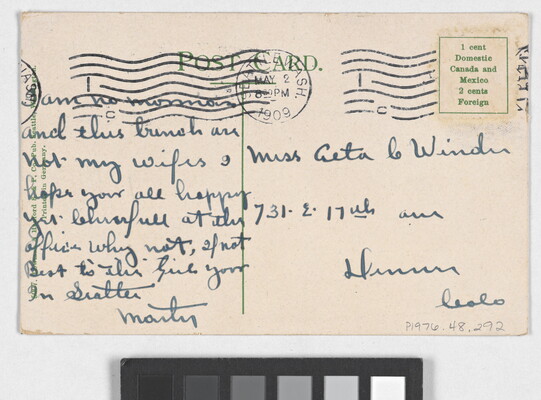 POST CARD.
SEATTLE, WASH.
MAY 2
8 PM
1909
1 cent
Domestic
Canada and
Mexico
2 cents
Foreign
I am no mormon
and this bunch are
not my wifes I
hope your all happy
yet cheerfull at the
office why not, if not
Best to the Girls your
in Seattle
Marty
Miss Aeta C Winder
731. E. 17th ave
Denver
Colo
P1976.48.292
Printed in Germany.